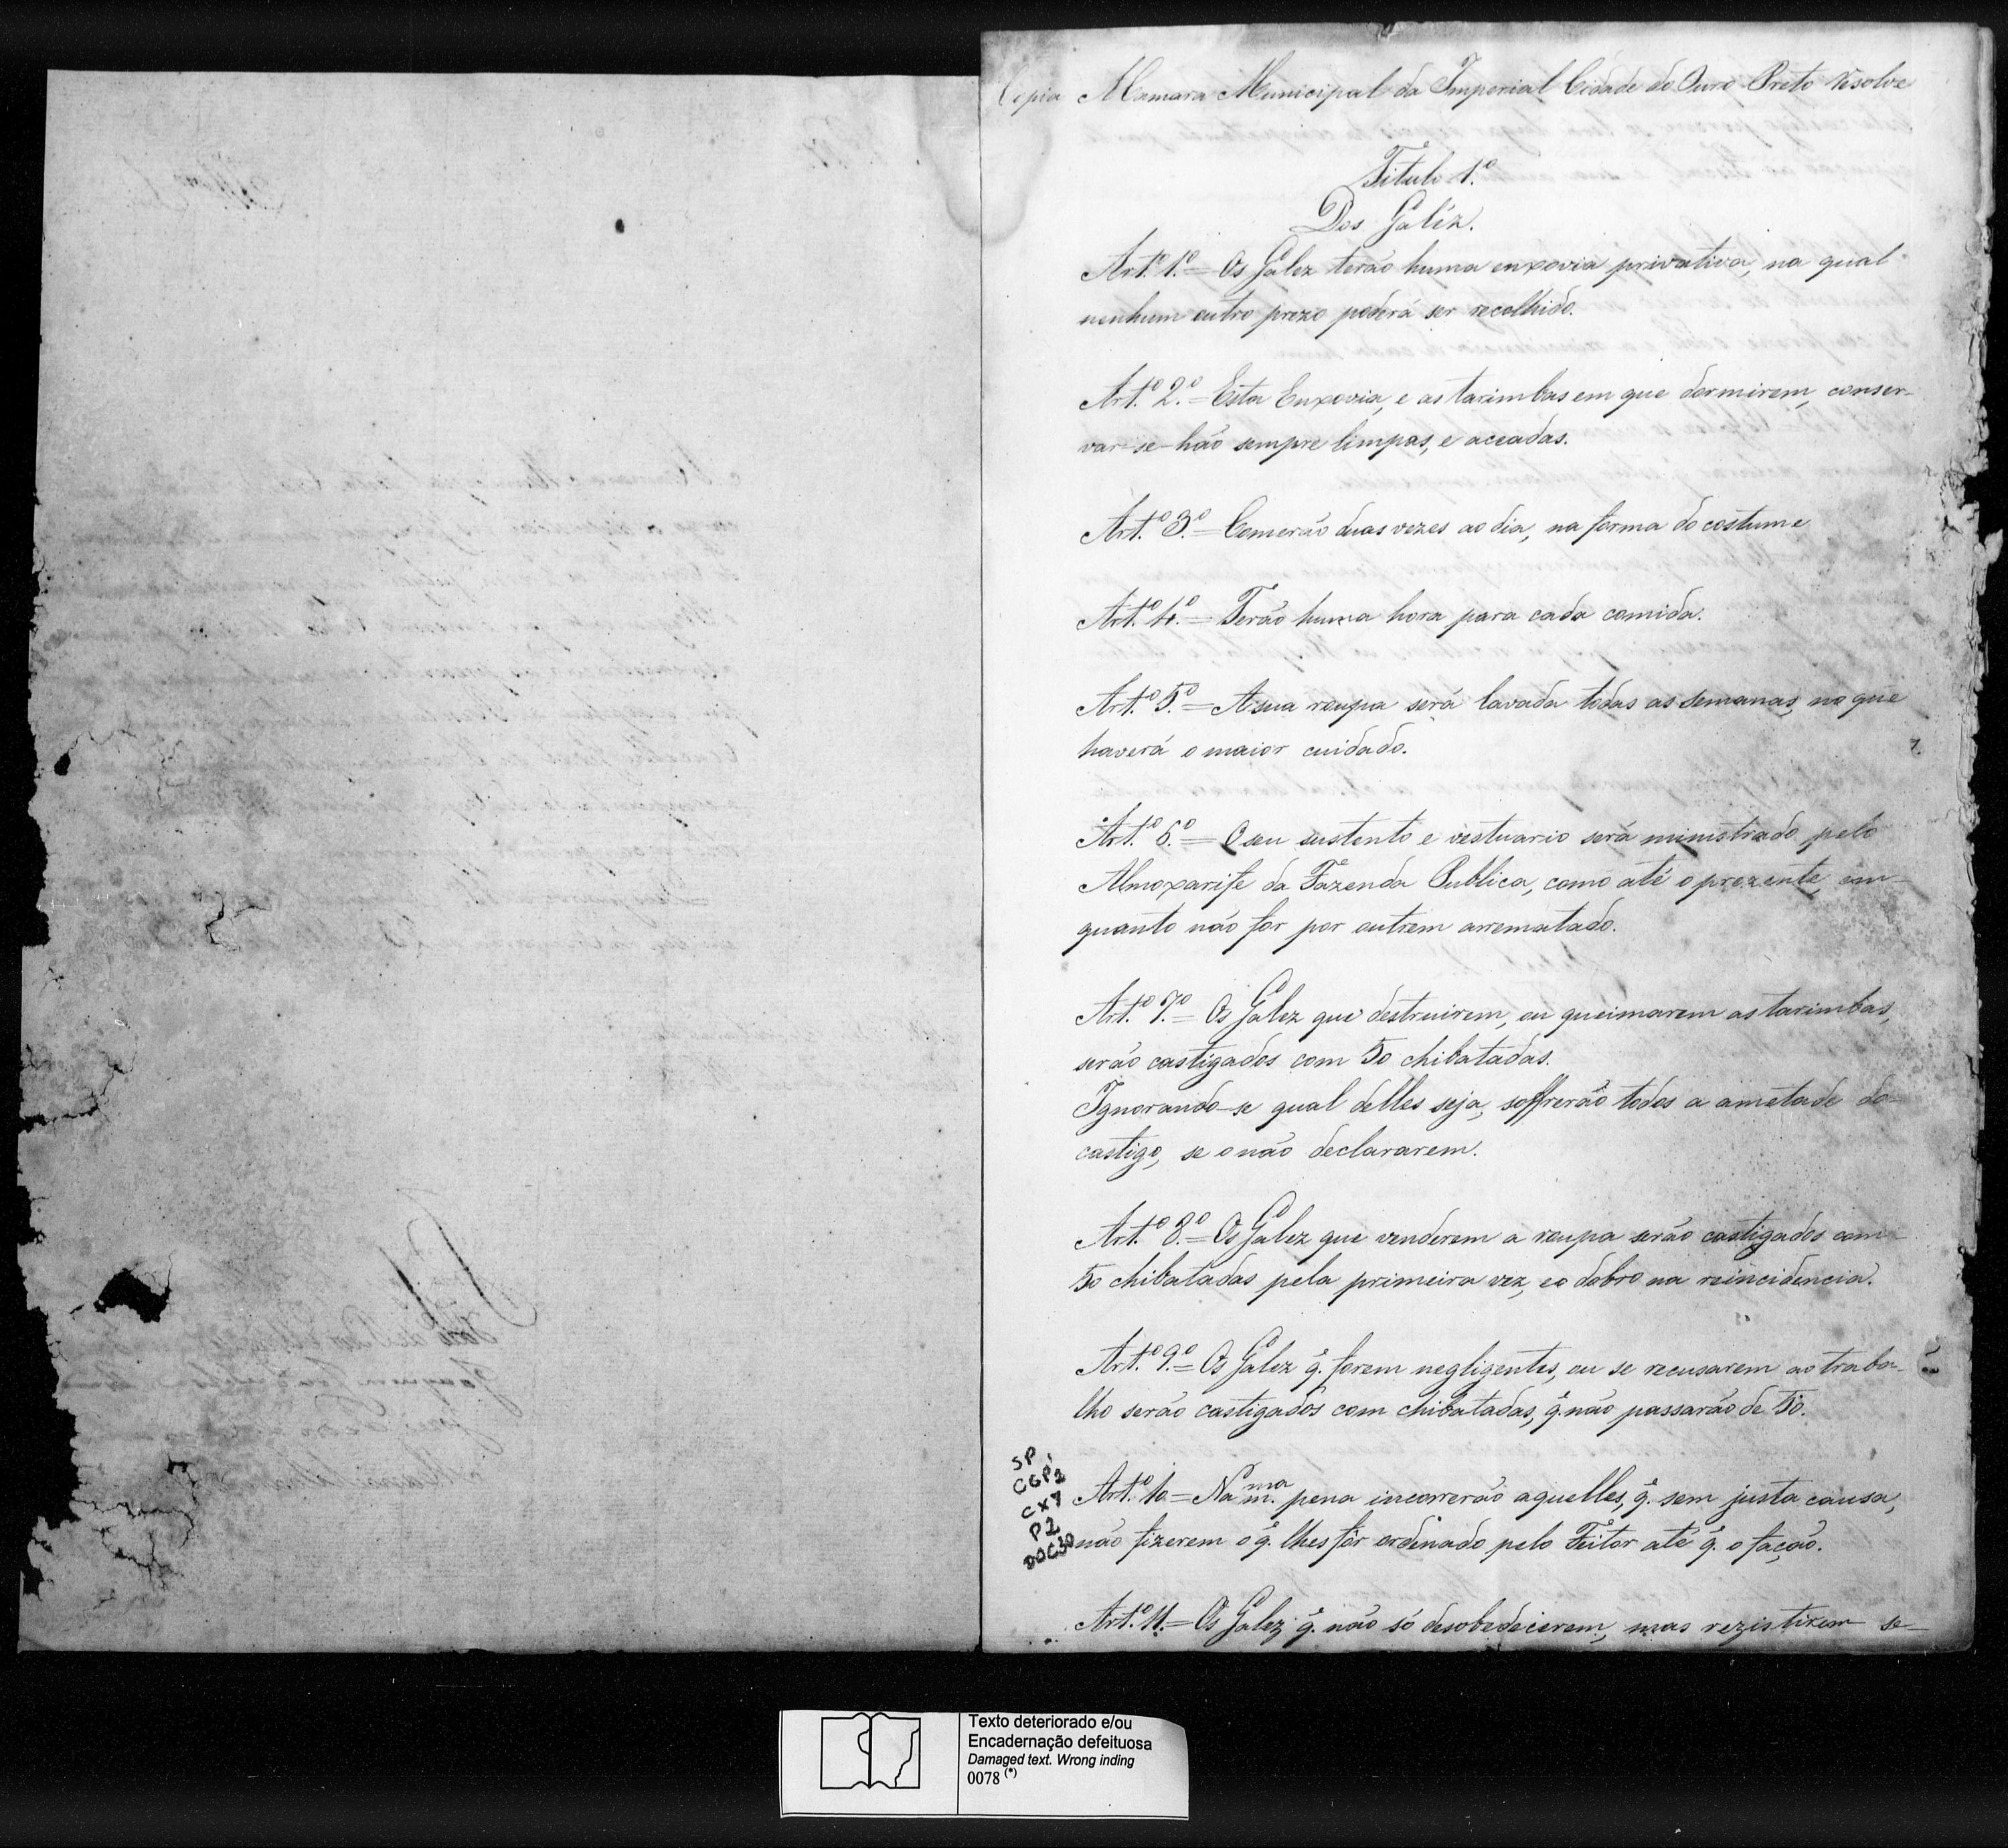 Copia A Camara Municipal da Imperial Cidade do Ouro Preto resolve
Titulo 1.º
Dos Galéz.
Art.º 1.º = Os Galez terão huma enxovia privativa, na qual
nenhum outro prezo poderá ser recolhido.
Art.º 2.º = Esta Enxovia, e as tarimbas em que dormirem, conser-
var-se-hão sempre limpas, e aceadas.
Art.º 3.º = Comerão duas vezes ao dia, na forma do costume
Art.º 4.º = Terão huma hora para cada comida.
Art.º 5.º = A sua roupa será lavada todas as semanas, no que
haverá o maior cuidado.
Art.º 6.º = O seu sustento e vestuario será ministrado pelo
Almoxarife da Fazenda Publica, como até o prezente, em-
quanto não for por outrem arrematado.
Art.º 7.º = Os Galez que destruirem, ou queimarem as tarimbas,
serão castigados com 50 chibatadas.
Ignorando-se qual delles seja, soffrerão todos a ametade do
castigo, se o não declararem.
Art.º 8.º = Os Galez que venderem a roupa serão castigados com
50 chibatadas pela primeira vez, e o dobro na reincidencia.
Art.º 9.º = Os Galez q̃. forem negligentes, ou se recusarem ao traba-
lho serão castigados com chibatadas, q̃. não passarão de 50.
Art.º 10 = Na m.ma pena incorrerão aquelles, q̃. sem justa causa,
não fizerem o q̃. lhes fôr ordenado pelo Feitor até q̃. o fação.
Art.º 11. = Os Galez q̃. não só desobedecerem, mas rezistirem se-
SP
CGP2
CX7
P2
DOC30
Texto deteriorado e/ou
Encadernação defeituosa
Damaged text. Wrong inding
0078 (*)